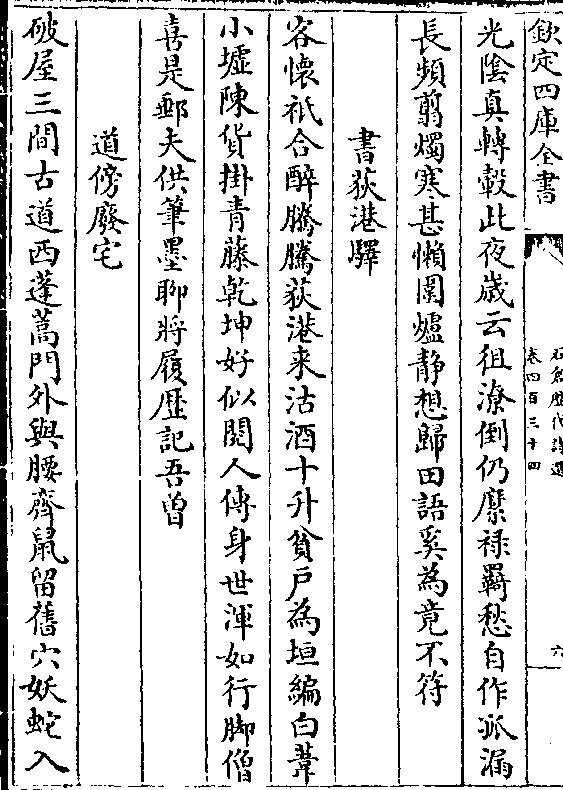 欽定四庫全書
石倉歷代詩選
卷四百三十四
六
光陰真轉轂此夜歲云徂潦倒仍縻禄羇愁自作孤漏
長頻剪燭寒甚懶圍爐靜想歸田語奚為竟不符
書荻港驛
客懷祇合醉騰騰荻港来沽酒十升貧戶為垣編白葦
小墟陳貨掛青藤乾坤好似閱人傳身世渾如行脚僧
喜是郵夫供筆墨聊將履歴記吾曽
道傍廢宅
破屋三間古道西蓬蒿門外與腰齊鼠留舊穴妖蛇入